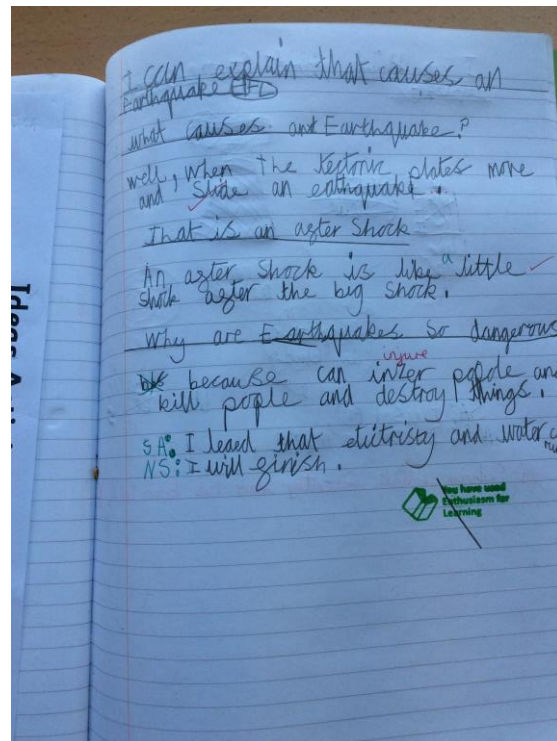 I can explain that causes an
Earthquake EFL
what causes and Earthquake?
well, when the tectonic plates move
and Slide an eathquake.
That is an after Shock
An after Shock is like a little
shock after the big shock.
Why are Earthquakes So dangerous
injure
because can inzer people and
kill pople and destroy things.
S.A: I leaed that eluctristy and water
NS: I will finish.
You have used
Enthusiasm for
Learning
Ideas